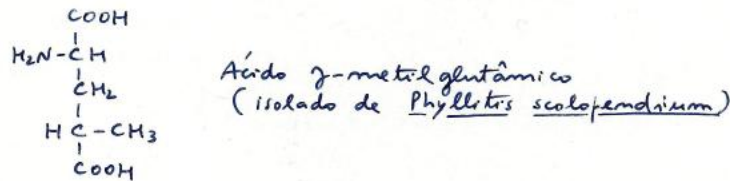 COOH
H₂N-CH
CH₂
HC-CH₃
COOH
Ácido γ-metilglutâmico
(isolado de Phyllitis scolopendrium)